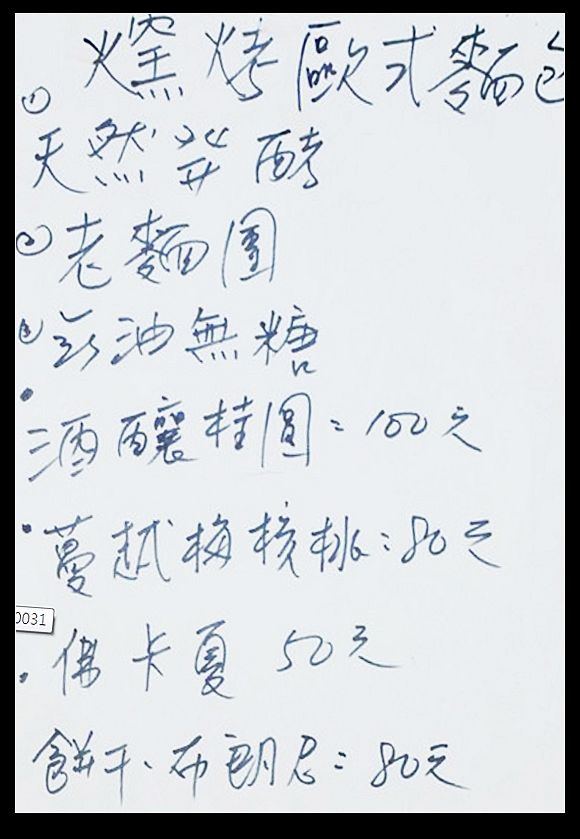 窯烤歐式麵包
① 天然発酵
② 老麵團
③ 無油無糖
• 酒釀桂圓=100元
• 蔓越梅核桃:80元
• 佛卡夏 50元
餅干、布朗尼=80元
0031